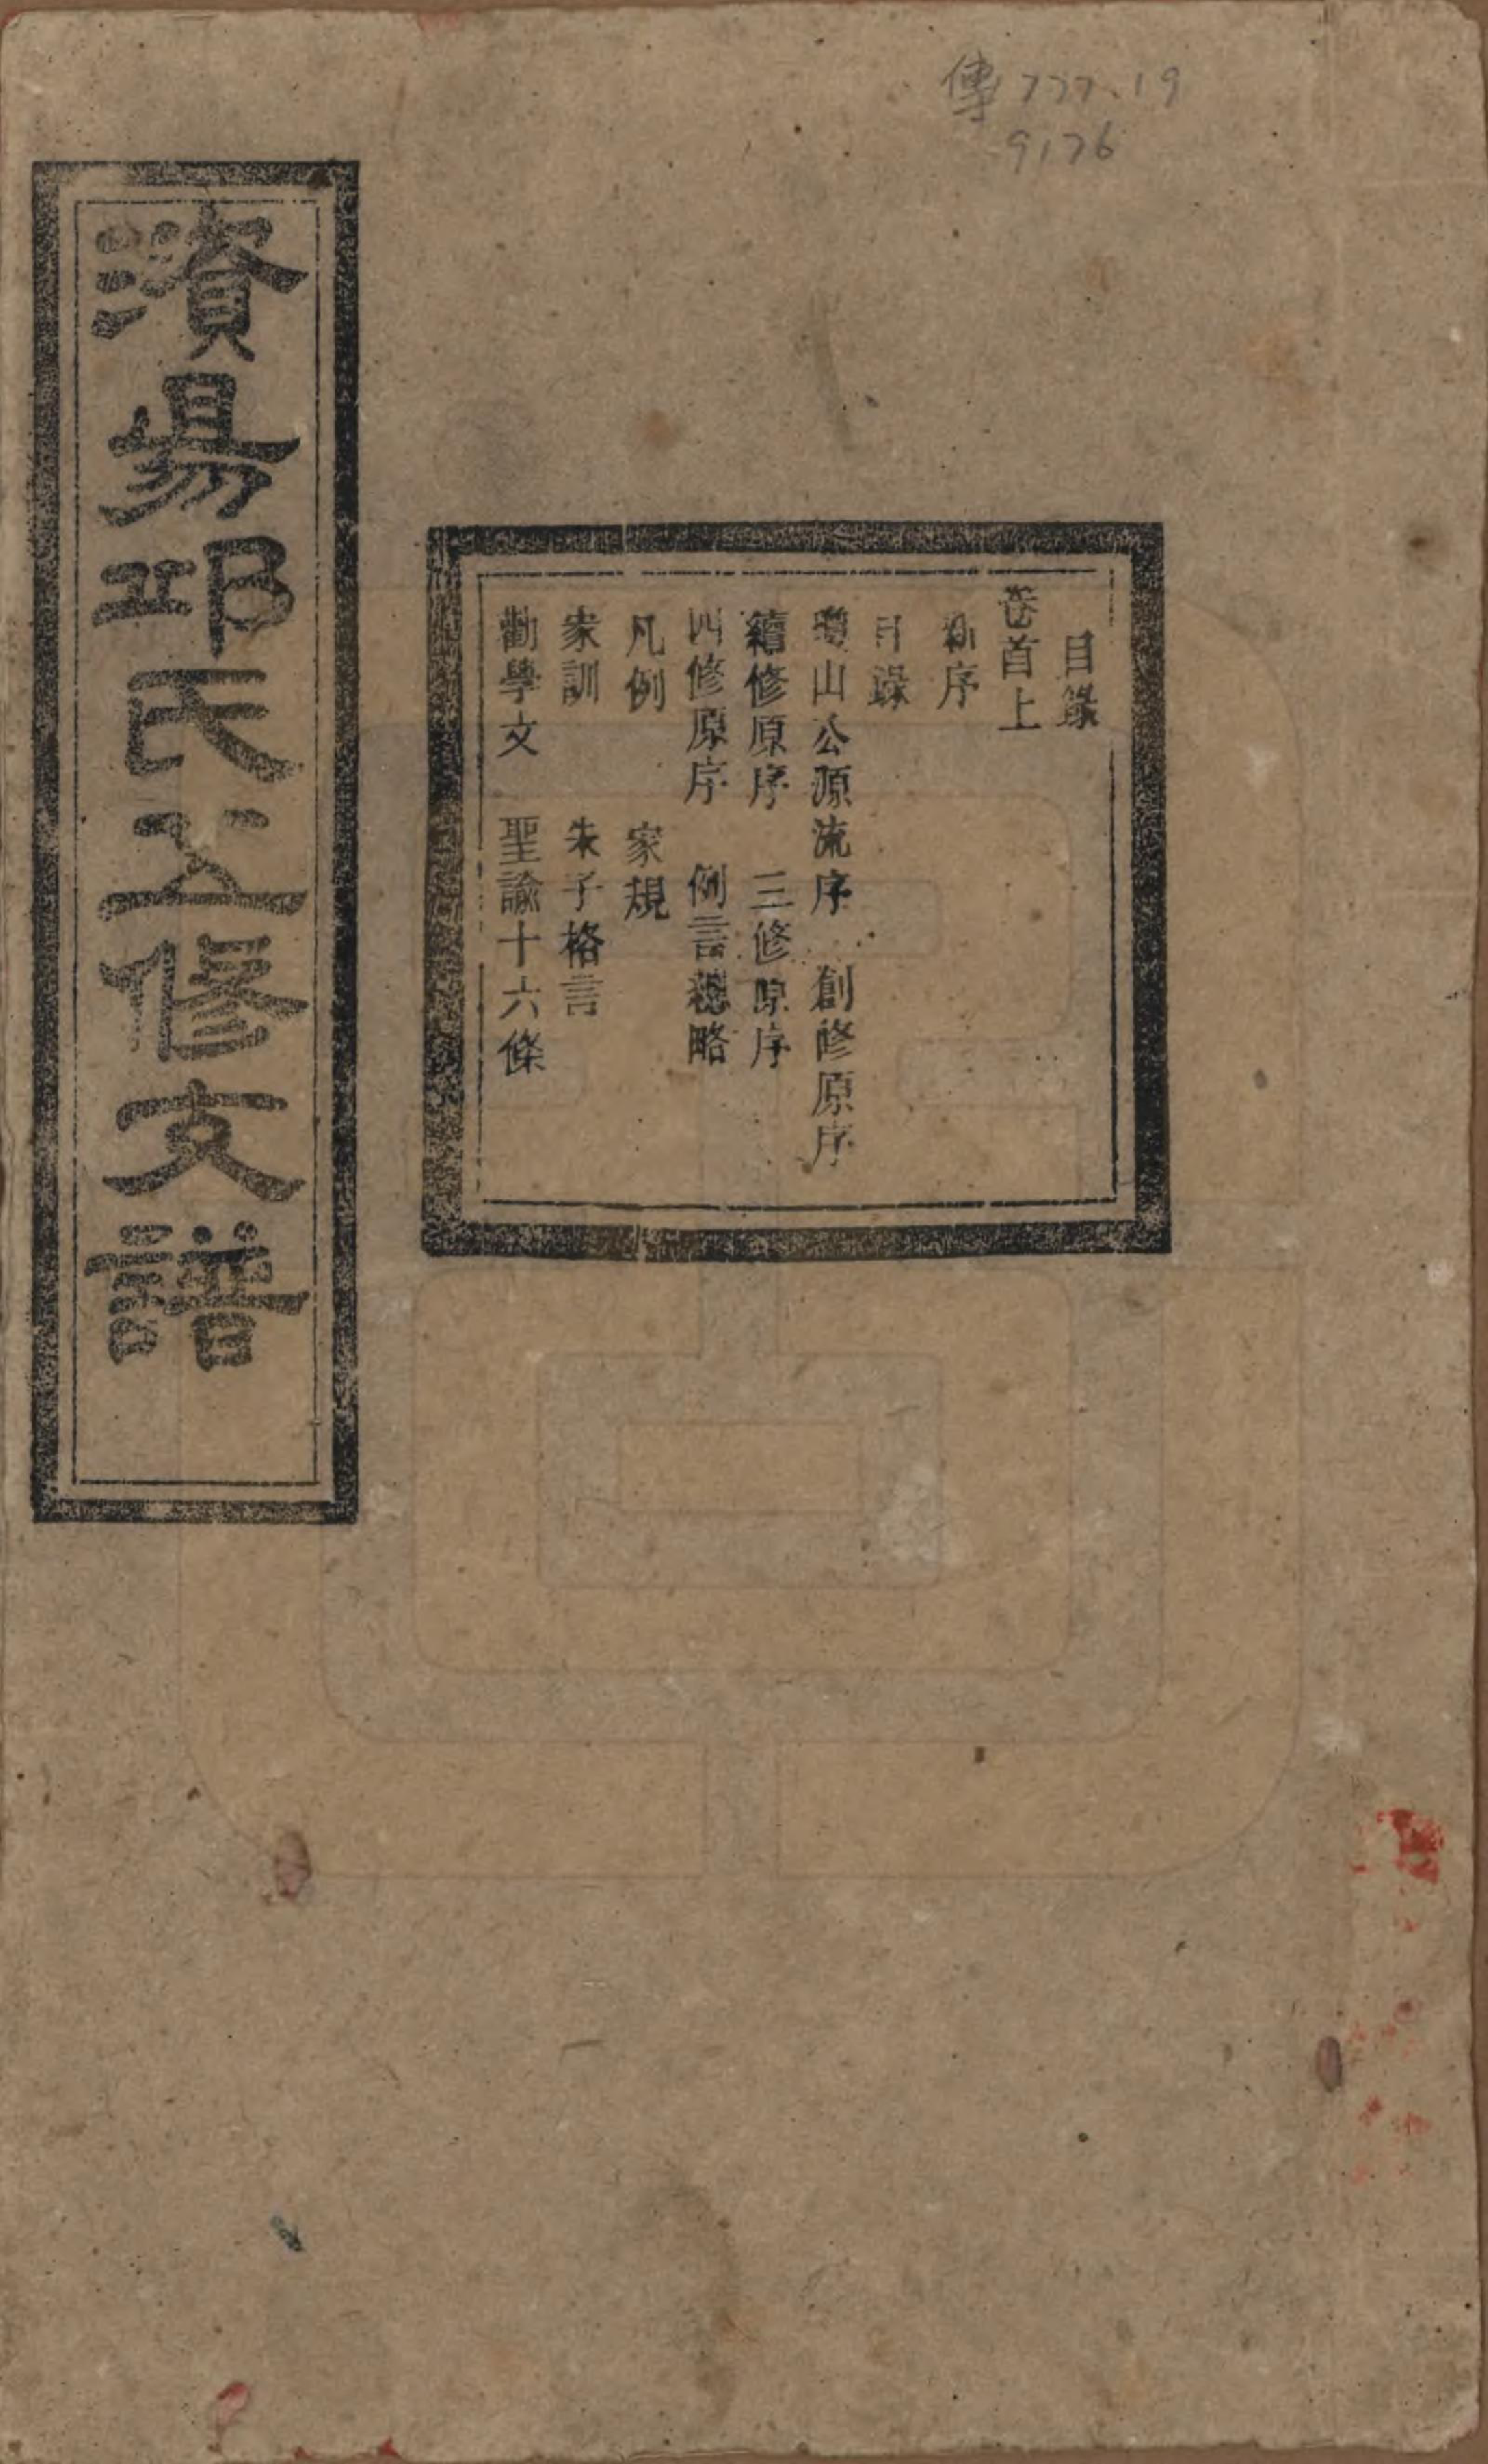 傳777.19
9176
目錄
卷首上
新序
目錄
瓊山公源流序 創修原序
續修原序 三修原序
四修原序 例言總略
凡例 家規
家訓 朱子格言
勸學文 聖諭十六條
濱易邱氏五修支譜